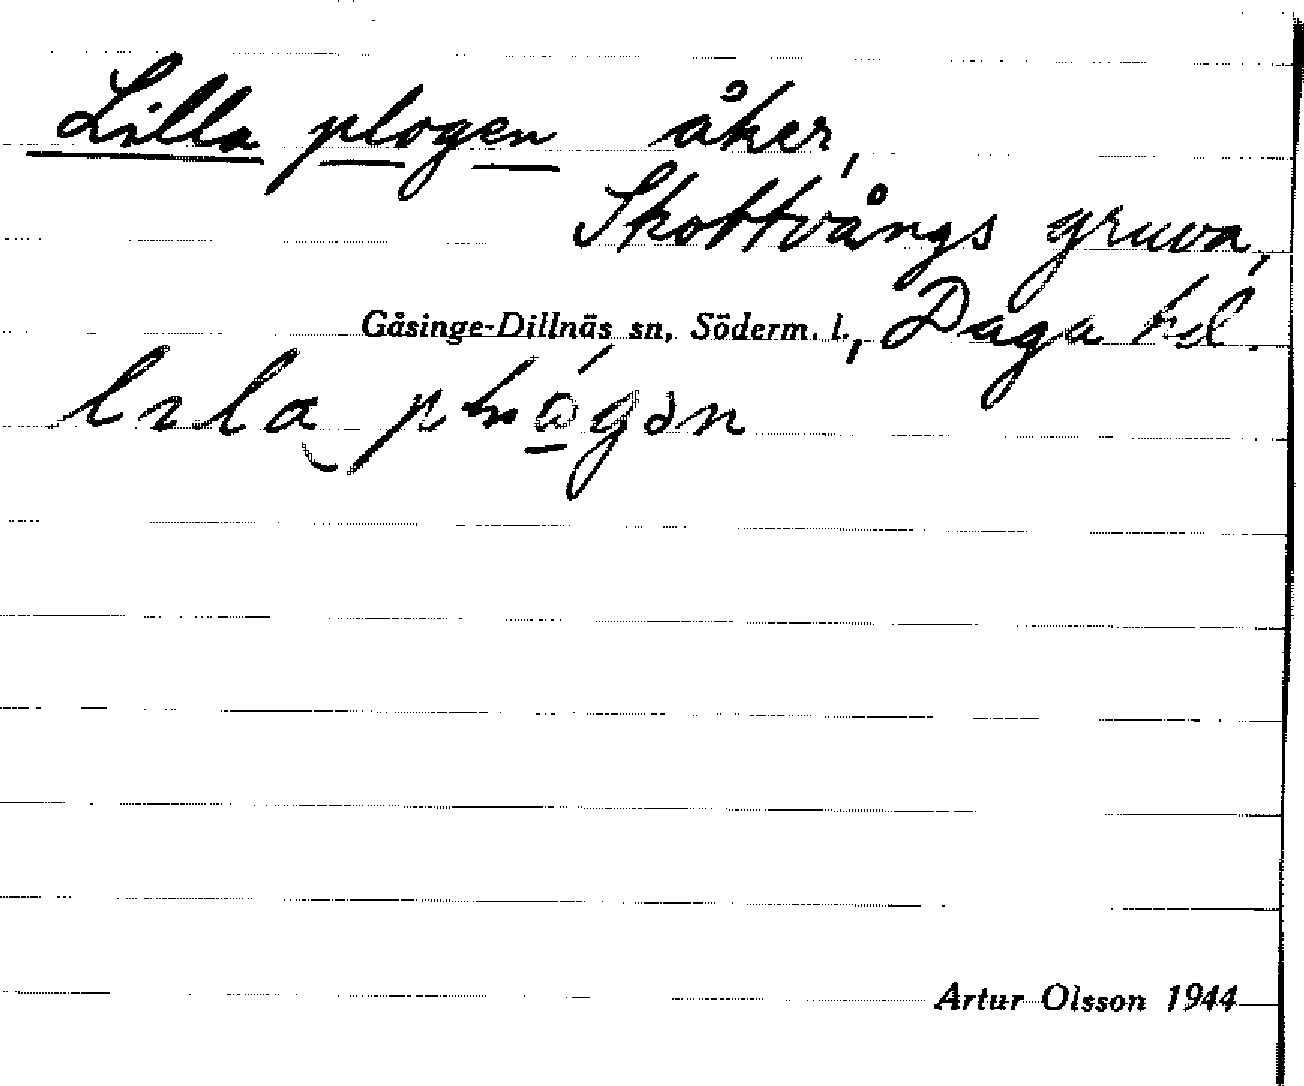 Lilla plogen åker,
Skottvångs gruva,
Gåsinge-Dillnäs sn, Söderm. l., Daga hd.
Artur Olsson 1944